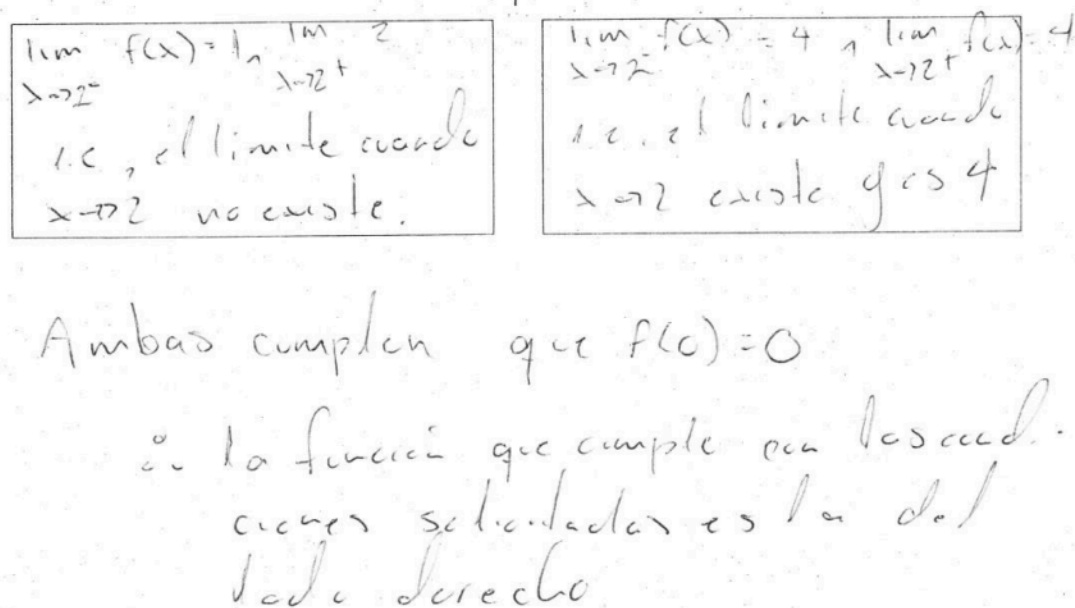 lim f(x) = 1, lim 2
x→2⁻ x→2⁺
i.e, el limite cuando
x→2 no existe.
lim f(x) = 4, lim f(x) = 4
x→2⁻ x→2⁺
i.e. el limite cuando
x→2 existe y es 4
Ambas cumplen que f(0)=0
∴ la función que cumple con las condi-
ciones solicitadas es la del
lado derecho